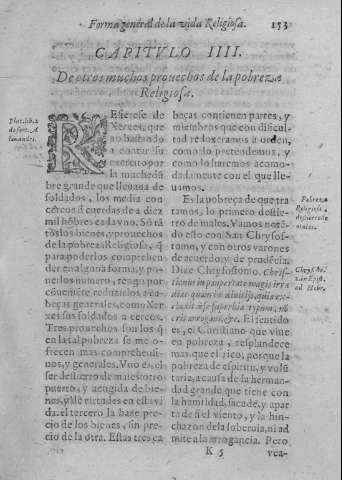 Forma general de la vida Religiosa. 153
CAPITVLO IIII.
De otros muchos prouechos de la pobreza
Religiosa.
Plut. lib. 2
REfierese de
Xerxes, que
no bastando
a contar su
exercito por
la muchedũ
bre grande que lleuaua de
soldados, los media con
cercos ò cuerdas de a diez
mil hõbres cada vno. Sõ tã
tos los bienes, y prouechos
de la pobreza Religiosa, q̃
para poderlos comprehen
der en alguna forma, y po-
nerlos numero, tengo por
cõueniẽte reduzirlos a ca-
beças generales, como Xer
xes sus soldados a cercos.
Tres prouechos son los q̃
en la tal pobreza se me o-
frecen mas comprehensi-
uos, y generales. Vno es, el
ser destierro de
puerto, y acogida de bie-
nes, y de virtudes en esta vi
da. el tercero la base sin
precio de los bienes, sin
precio de la otra. Estas tres ca
beças contienen partes, y
miembros que con dificul
tad reduziramos a orden,
como lo pretendemos, y
como lo haremos acomo-
dadamente con el que lle-
uamos.
Es la pobreza de que tra
tamos, lo primero destie-
rro de males. Vamos notã
do esto con San Chrysos-
tomo, y con otros varones
de acuerdo, y de prudẽcia.
Dize Chrysostomo. Chris-
tianus in paupertate magis irra
diat quam in diuitijs, quia
El sentido
es, el Christiano que viue
en pobreza, resplandece
mas que el rico, porque la
pobreza de espiritu, y volũ
taria, a causa de la herman-
dad grande que tiene con
la humildad, sacude, y apar
ta de si el viento, y la hin-
chazon de la soberuia, ni ad
mite a la arrogancia. Pero
Pobreza
Religiosa
destierro de
males.
Chrys. ho.
2. in Epist.
ad Hebr.
K 5 vea-